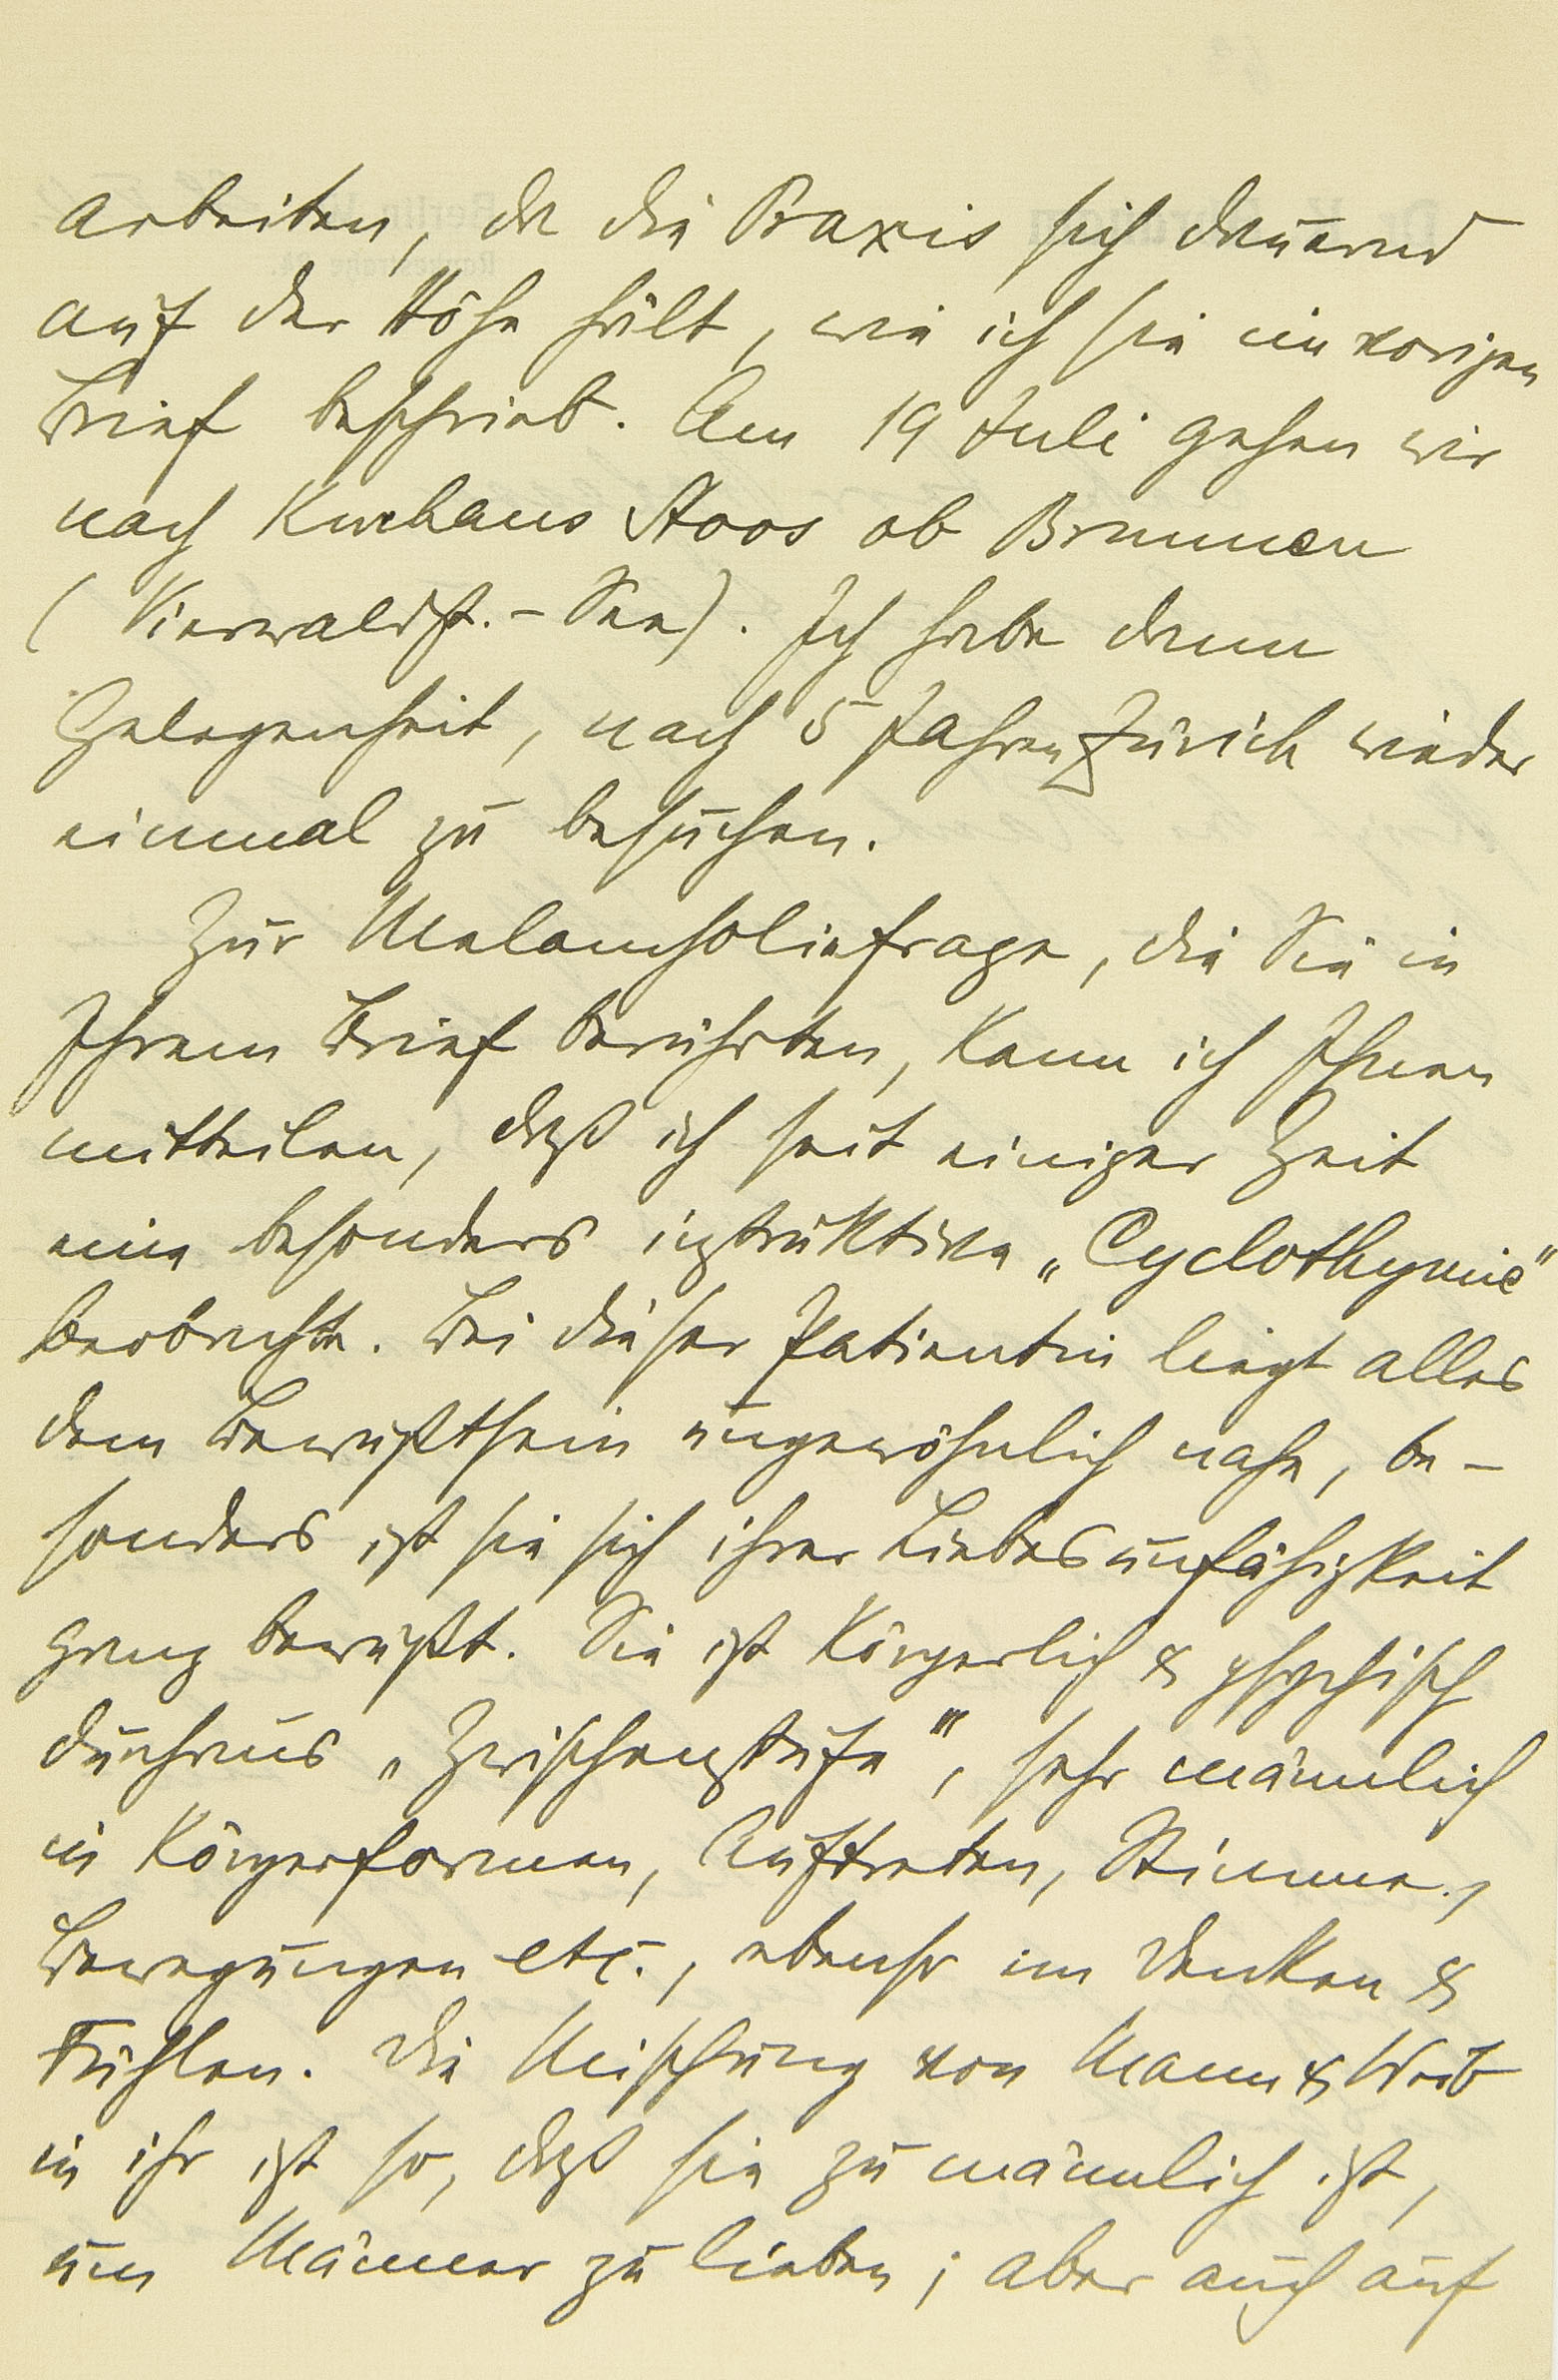 arbeiten, da die Praxis sich dauernd
auf der Höhe hält, wie ich sie im vorigen
Brief beschrieb. Am 19 Juli gehen wir
nach Kurhaus Stoos ob Brunnen
(Vierwaldst. - See). Ich habe dann
Gelegenheit, nach 5 Jahren Zürich wieder
einmal zu besuchen.
Zur Melancholiefrage, die Sie in
Ihrem Brief berührten, kann ich Ihnen
mitteilen, daß ich seit einiger Zeit
eine besonders instruktive „Cyclothymie"
beobachte. Bei dieser Patientin liegt alles
dem Bewußtsein ungewöhnlich nahe, be-
sonders ist sie sich ihrer Liebesunfähigkeit
ganz bewußt. Sie ist körperlich & psychisch
durchaus „Zwischenstufe", sehr männlich
in Körperformen, Auftreten, Stimme,
Bewegungen etc., ebenso im Denken &
Fühlen. Die Mischung von Mann & Weib
in ihr ist so, daß sie zu männlich ist,
um Männer zu lieben; aber auch auf